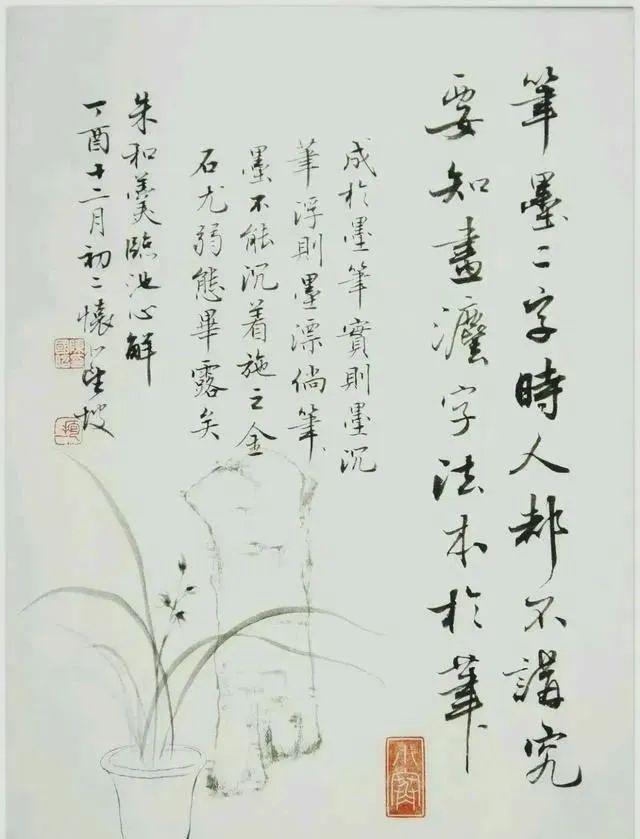 筆墨二字時人都不講究
要知畫灋字法本於筆
成於墨筆實則墨沉
筆浮則墨漂倘筆
墨不能沉着施之金
石尤弱態畢露矣
朱和羹臨池心解
丁酉十二月初二懷